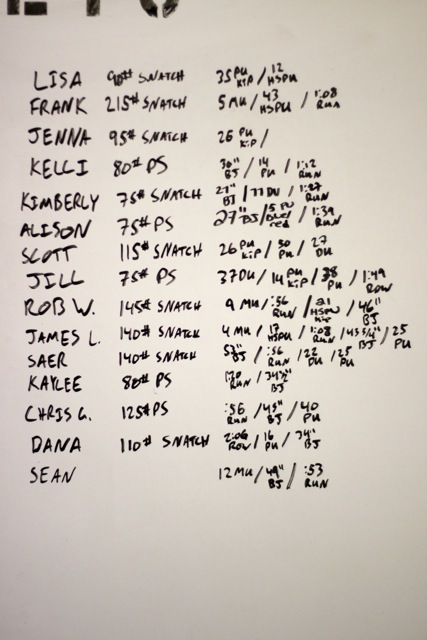 LISA 90# SNATCH 35 PU KIP / 12 HSPU
FRANK 215# SNATCH 5 MU / 43 HSPU / 1:08 RUN
JENNA 95# SNATCH 26 PU KIP /
KELLI 80# PS 30" BJ / 14 PU / 1:12 RUN
KIMBERLY 75# SNATCH 27" BJ / 77 DU / 1:27 RUN
ALISON 75# PS 27" BJ / 5 PU red / 1:39 RUN
SCOTT 115# SNATCH 26 PU KIP / 30 PU / 27 DU
JILL 75# PS 37 DU / 14 PU KIP / 38 PU / 1:49 ROW
ROB W. 145# SNATCH 9 MU / :56 RUN / 21 HSPU KIP / 46" BJ
JAMES L. 140# SNATCH 4 MU / 17 HSPU / 1:08 RUN / 43 3/4" BJ / 25 PU
SAER 140# SNATCH 53" BJ / :56 RUN / 22 DU / 25 PU
KAYLEE 80# PS 1:20 RUN / 34 1/2" BJ
CHRIS G. 125# PS :56 RUN / 45" BJ / 40 PU
DANA 110# SNATCH 2:06 ROW / 16 PU / 34" BJ
SEAN 12 MU / 49" BJ / :53 RUN